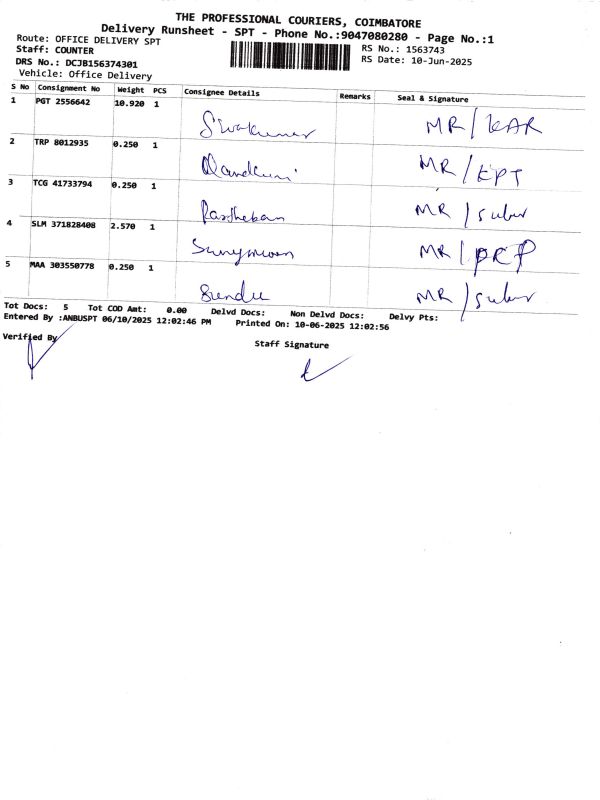 THE PROFESSIONAL COURIERS, COIMBATORE
Delivery Runsheet - SPT - Phone No.:9047080280 - Page No.:1
Route: OFFICE DELIVERY SPT
RS No.: 1563743
Staff: COUNTER
RS Date: 10-Jun-2025
DRS No.: DCJB156374301
Vehicle: Office Delivery
S No Consignment No Weight PCS Consignee Details Remarks Seal & Signature
1 PGT 2556642 10.920 1
Sivakumar MR/KAR
2 TRP 8012935 0.250 1
MR/KPT
3 TCG 41733794 0.250 1
Partheban MR/Subur
4 SLM 371828408 2.570 1
MR/PRP
5 MAA 303550778 0.250 1
MR/Subur
Tot Docs: 5 Tot COD Amt: 0.00 Delvd Docs: Non Delvd Docs: Delvy Pts:
Entered By :ANBUSPT 06/10/2025 12:02:46 PM Printed On: 10-06-2025 12:02:56
Verified By
Staff Signature